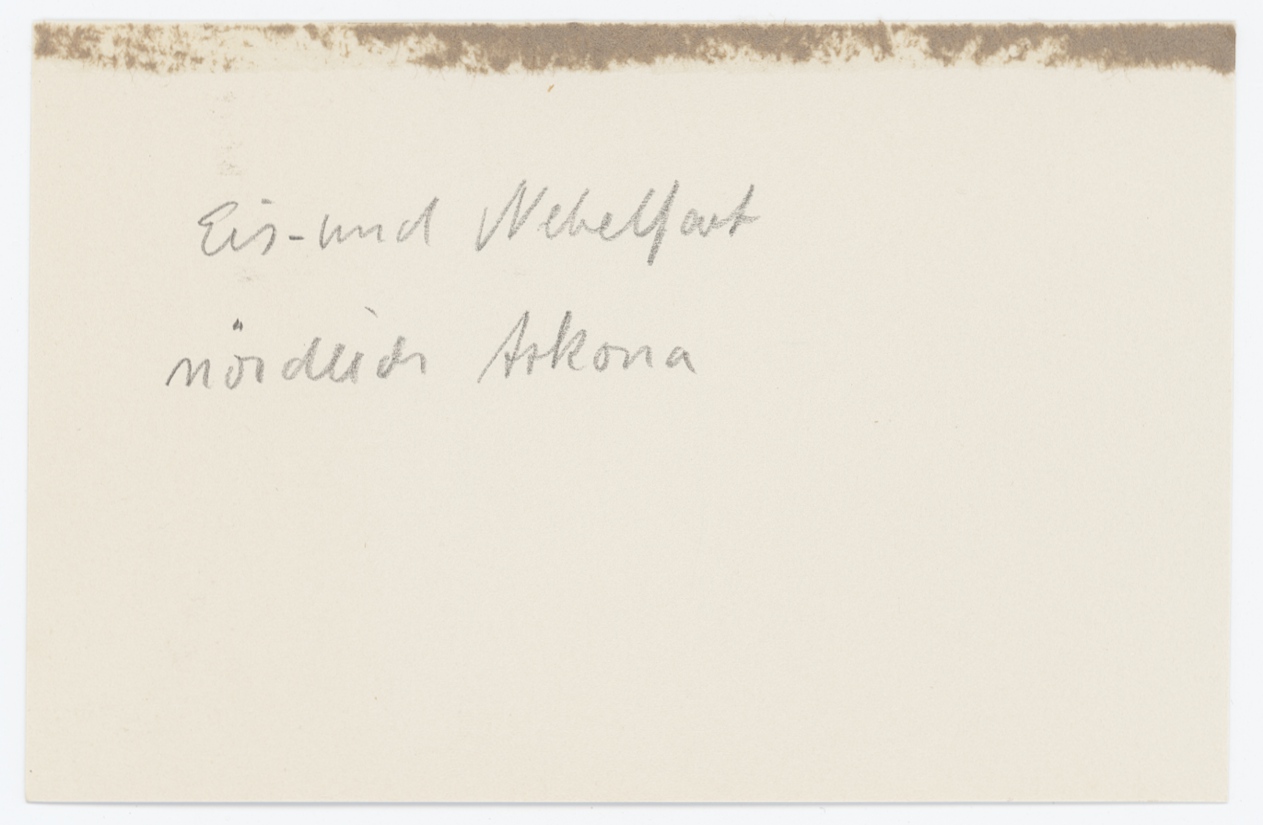 Eis-und Nebelfart
nördlich Arkona